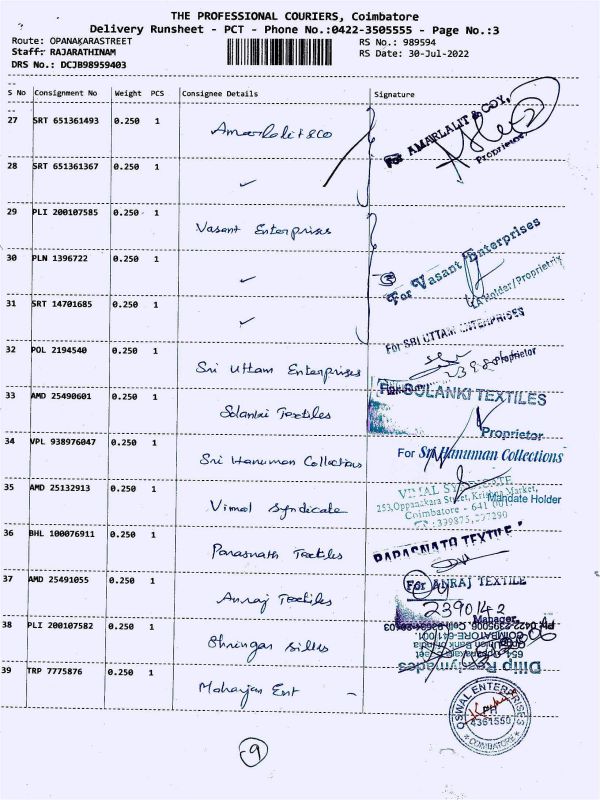 THE PROFESSIONAL COURIERS, Coimbatore
Delivery Runsheet - PCT - Phone No.:0422-3505555 - Page No.:3
Route: OPANAKARASTREET
RS No.: 989594
Staff: RAJARATHINAM
RS Date: 30-Jul-2022
DRS No.: DCJB98959403
S No Consignment No Weight PCS Consignee Details Signature
27 SRT 651361493 0.250 1 Amarlalit & Co
For AMARLALIT & COY,
Proprietor
28 SRT 651361367 0.250 1 ✓
29 PLI 200107585 0.250 1 Vasant Enterprises
For Vasant Enterprises
30 PLN 1396722 0.250 1 ✓
③
Holder/Proprietrix
31 SRT 14701685 0.250 1 ✓
For SRI UTTAM ENTERPRISES
32 POL 2194540 0.250 1 Sri Uttam Enterprises
Proprietor
33 AMD 25490601 0.250 1 Solanki Textiles
SOLANKI TEXTILES
Proprietor
34 VPL 938976047 0.250 1 Sri Hanuman Collections
For Sri Hanuman Collections
35 AMD 25132913 0.250 1 Vimal Syndicate
VIMAL SYNDICATE
253, Oppanakara Street, Krishna Market,
Mandate Holder
Coimbatore - 641 001.
36 BHL 100076911 0.250 1 Parasnath Textiles
PARASNATH TEXTILE
37 AMD 25491055 0.250 1 Anraj Textiles
For ANRAJ TEXTILE
2390142
Manager
38 PLI 200107582 0.250 1 Shringar Silks
COIMBATORE-641 001.
Union Bank of India
Dilip Readymades
39 TRP 7775876 0.250 1 Maharjan Ent -
OSWAL ENTERPRISES
PH
4361550
COIMBATORE
9